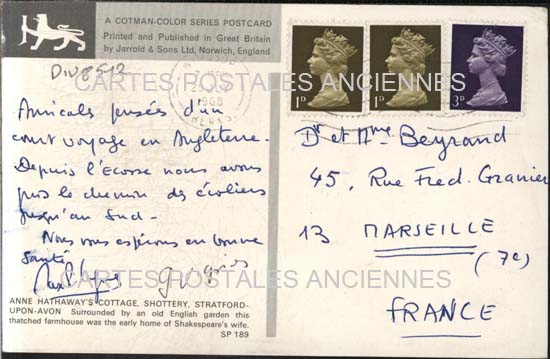 A COTMAN-COLOR SERIES POSTCARD
Printed and Published in Great Britain
by Jarrold & Sons Ltd, Norwich, England
DIV8512
1968
1D
1D
3D
CARTES POSTALES ANCIENNES
Amicales pensées d'un
court voyage en Angleterre.
Depuis l'Ecosse nous avons
pris le chemin des écoliers
jusqu'au Sud -
Nous vous espérons en bonne
santé
Dr et Mme Beyrand
45, Rue Fred. Granier
13 MARSEILLE
(7e)
FRANCE
CARTES POSTALES ANCIENNES
ANNE HATHAWAY'S COTTAGE, SHOTTERY, STRATFORD-
UPON-AVON Surrounded by an old English garden this
thatched farmhouse was the early home of Shakespeare's wife.
SP 189